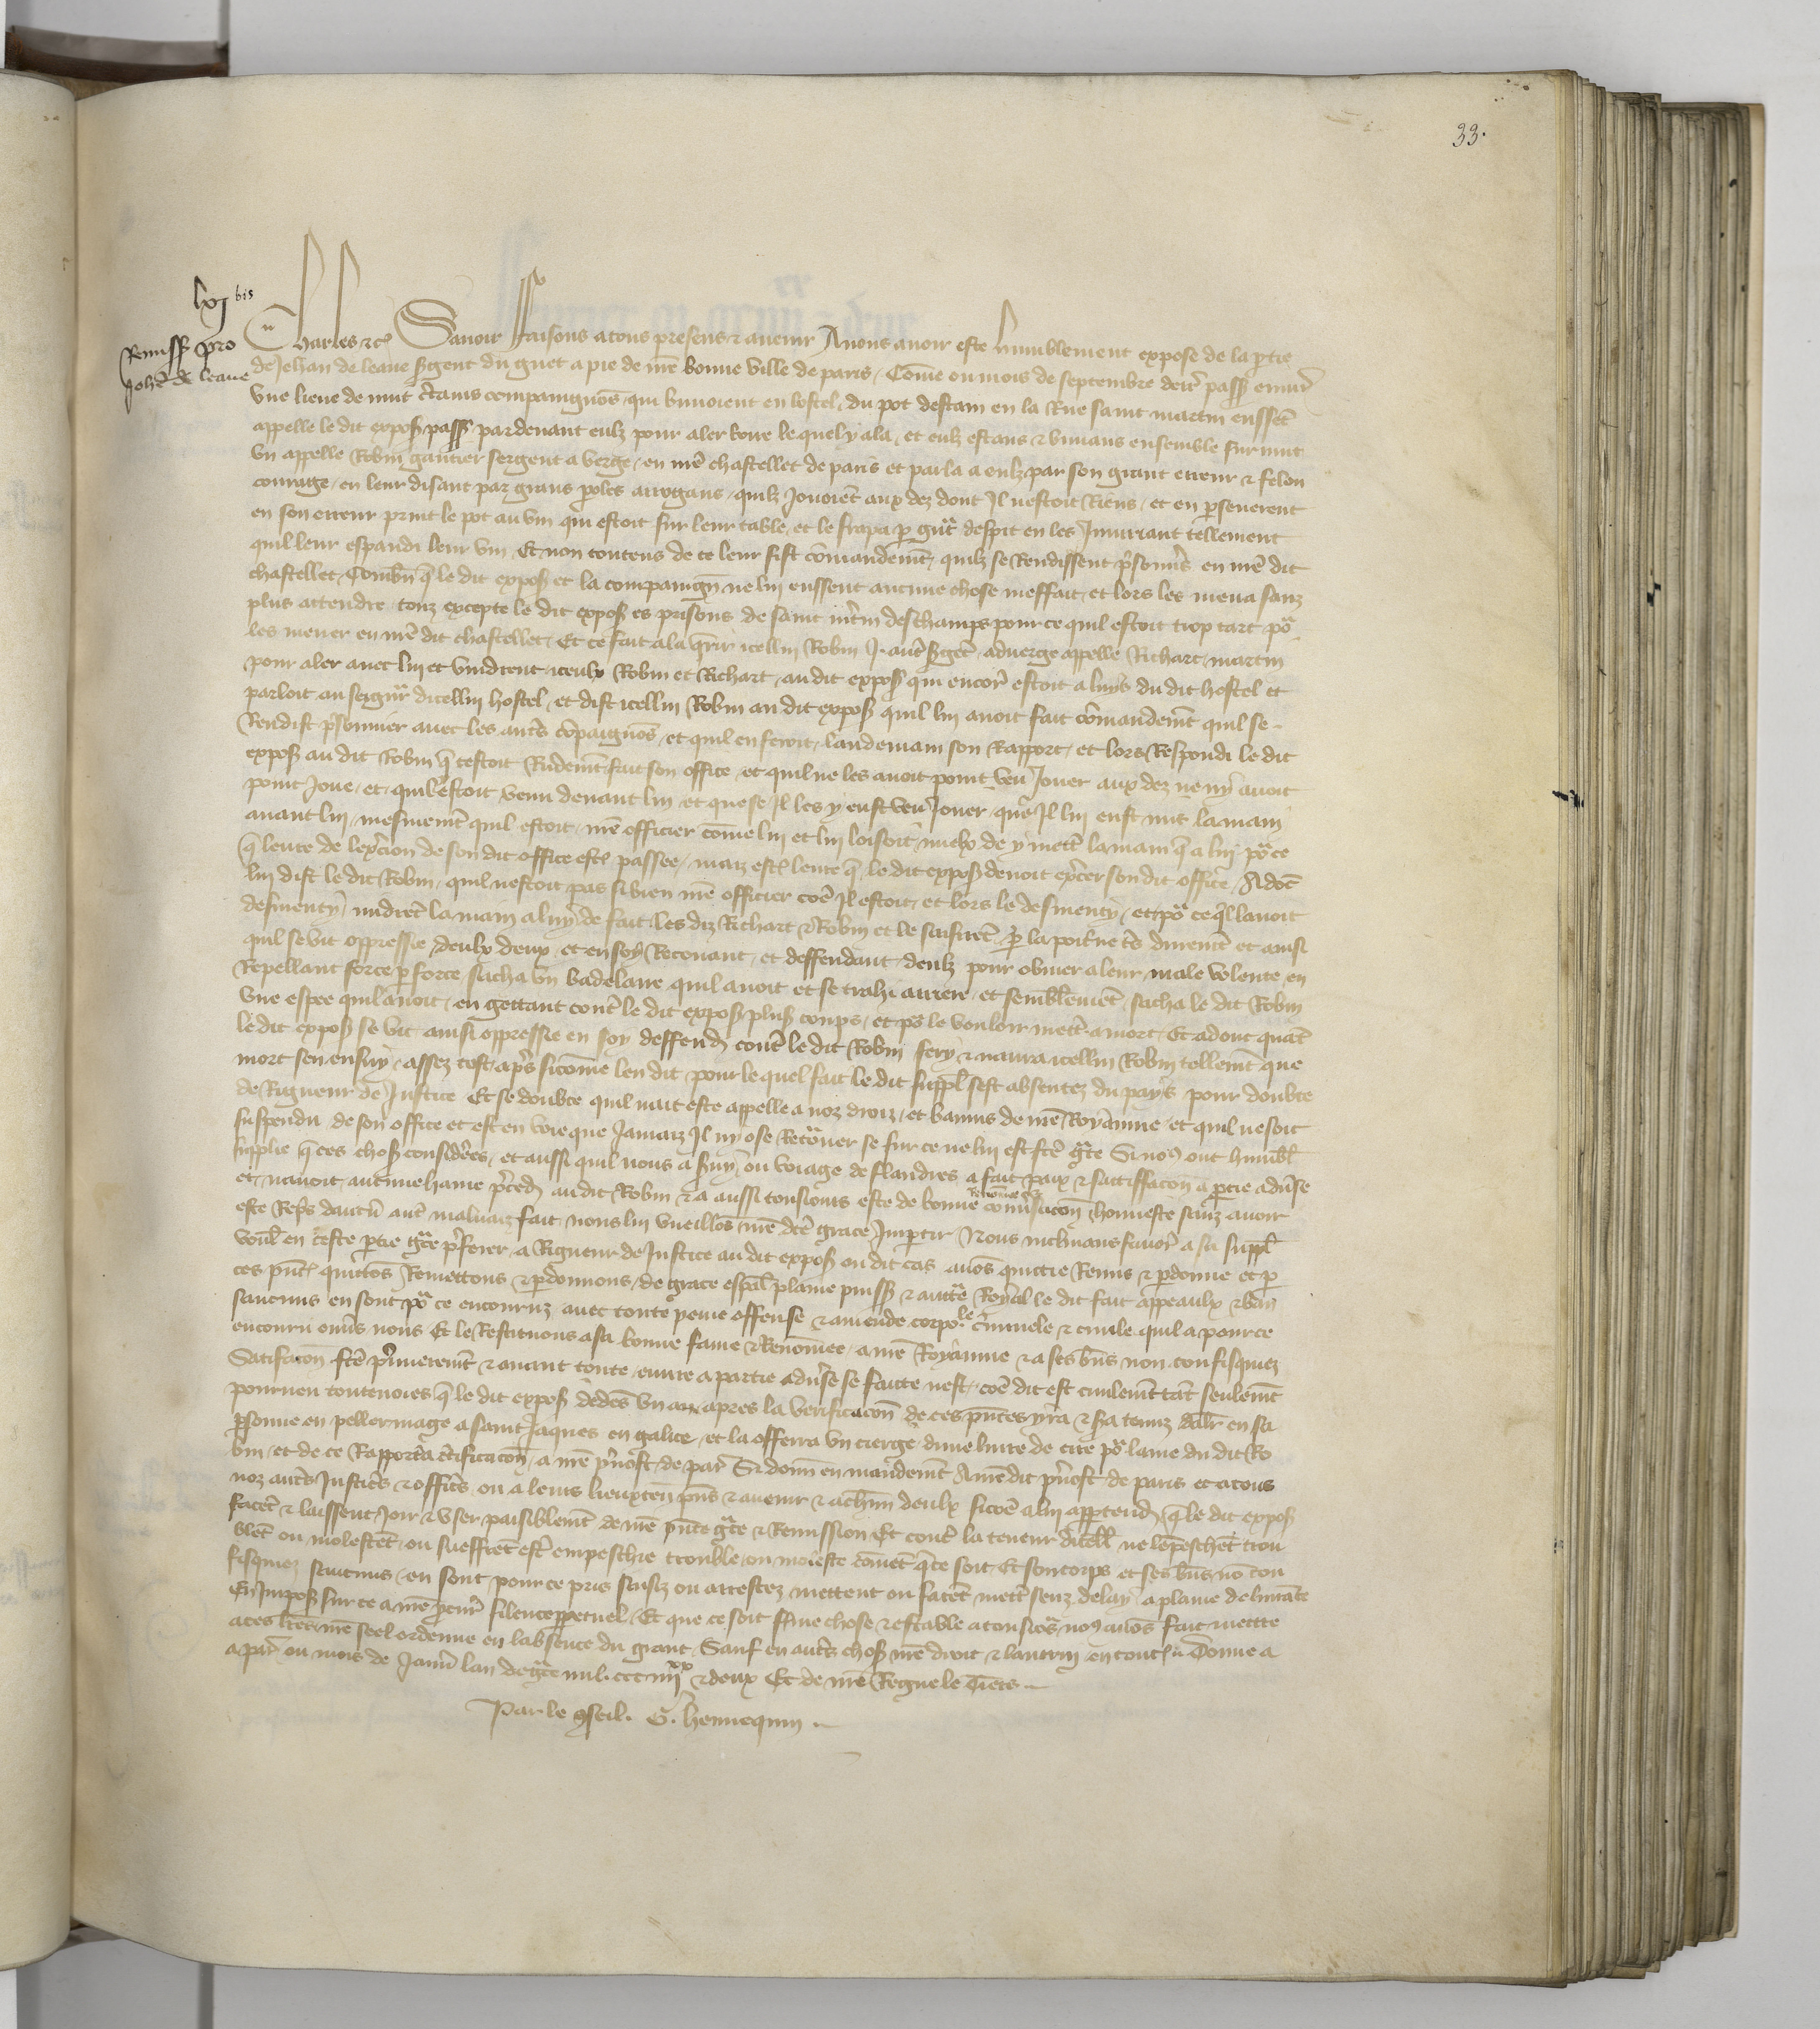 33.
lxj bis
Remiss̃ pro
Joh̃e de leaue
Charles etc̃ Sauoir faisons a tous presens et auenir Nous auoir este humblement expose de la ptie
de Jehan de leaue sgent du guet a pie de nr̃e bonne ville de paris, Com̃e ou mois de septembre derr̃ pass̃ enuir̃
vne lieue de nuit c̃tains compaingnõs qui buuoient en lostel du pot destain en la Rue saint martin eussẽt
appelle le dit expos̃ pass̃ pardeuant eulz pour aler boire le quel y ala, et eulz estans et buuans ensemble suruint
vn appelle Robin gautier sergent a verge, en nr̃e chastellet de paris et parla a eulz par son grant erreur et felon
courage, en leur disant par grans poles arrogans, quilz Jouoiẽt aux dez dont Il nestoit Riens, et en perseuerent
en son erreur print le pot au vin qui estoit sur leur table, et le frapa p gñt despit en les Iniuriant tellement
quil leur espandi leur vin Et non contens de ce leur fist com̃andem̃t, quilz se Rendissent p̃sonñs en nr̃e dit
chastellet, Comb̃n q̃ le dit expos̃ et la compaingñ ne lui eussent aucune chose meffait, et lors les mena sanz
plus attendre, touz excepte le dit expos̃ es prisons de saint m̃tin des champs pour ce quil estoit trop tart po᷑
les mener en nr̃e dit chastellet, Et ce fait ala q̃rir icellui Robin .j. aut̃ sgẽt, aduerge appelle Richart martin
pour aler auec lui et vindrent iceulx Robin et Richart, au dit expos̃ qui encor̃ estoit a luys du dit hostel et
parloit au seigñr dicellui hostel, et dist icellui Robin au dit expos̃ quil lui auoit fait com̃andem̃t quil se
Rendist p̃sonnier auec les aut̃s cõpaignõs, et quil en feroit, landemain son Rapport, et lors Respondi le dit
expos̃ au dit Robin q̃ cestoit Rudem̃t fait son office, et quil ne les auoit point veu Jouer aux dez ne ny auoit
point Joue, et quil estoit venu deuant lui, et que se Il les y eust veu Jouer, que Il lui eust mit la main
auant lui, mesmem̃t quil estoit, nr̃e officier com̃e lui et lui loisoit mielx de y mett̃ la main q̃ a lui po᷑ ce
q̃ leure de lex̃cion de son dit office est̃ passee, maiz est̃ leure q̃ le dit expos̃ deuoit ex̃cer son dit office, Adõc
lui dist le dit Robin, quil nestoit pas si bien nr̃e officier cõe Il estoit, et lors le desmenty, et po᷑ ce q̃l lauoit
desmenty, mdrẽt la main a luy de fait les diz Richart et Robin et le saisirẽt p̃ la poit̃ne t̃s durem̃t et ainsi
quil se vit oppressie deulx deux, et en soy Recouant, et deffendant deulz pour obuier a leur male volente, en
Repellant force p force, sacha vn badelaire quil auoit et se trahi arriere, et semblem̃t, sacha le dit Robin
vne espee quil auoit, en gettant cont̃ le dit expos̃ plus̃ coups, et p̃s le vouloir mett̃ a mort, Et adonc quãt
le dit expos̃ se vit ainsi oppressie en soy deffend̃ cont̃ le dit Robin fery et naura icellui Robin tellem̃t que
mort sen ensuy, assez tost ap̃s si com̃e len dit, pour le quel fait le dit suppl̃ sest absentez du pays pour doubte
de Rigueur de Justice Et se doubte quil nait este appelle a noz droiz, et banniz de nr̃e Royaume, et quil ne soit
suspendu de son office et est en voie que Jamaiz Il ny ose Retõner se sur ce ne lui est fc̃e gr̃ce Si noꝰ ont humbl̃
supplie q̃ ces chos̃ consider̃es, et aussi quil nous a s̃uy, ou voiage de flandres a fait paix et satiffacõn a ptie adũse
et nauoit aucune haine p̃ced̃ au dit Robin et a aussi tousiours este de bonne renom̃ee conũsacõn honneste sanz auoir
este Repr̃s daucũ aut̃ maluaiz fait, nous lui vueillõs nr̃e dc̃e grace Impartir, Nous inclinans fauor̃ a sa suppl̃
voul̃ en ceste ptie gr̃ce p̃ferer, a Rigueur de Justice au dit expos̃ ou dit cas auõs quictie Remis et pdonne et p
ces pñt̃ quittõs Remettons et pdonnons, de grace esp̃al plaine puiss̃ et auct̃e Royal le dit fait appeaulx et bañ
saucuns en sont po᷑ ce encouruz auec toute peine offense et amende corpo.le c̃minele et ciuile quil a pour ce
encouru enũs nous Et le Restituons a sa bonne fame et Renom̃ee, a nr̃e Royaume et a ses bñs non confisquiez
Satisfacõn fc̃e p̃mierem̃t et auant toute euure a partie adũse se faicte nest, cõe dit est ciuilem̃t tãt seulem̃t
pourueu toutesuoies q̃ le dit expos̃ dedẽs vn an apres la verificacõn de ces pñtes yra et sa tenuz daler en sa
psonne en pellerinage a saint Jaques en galice, et la offerra vn cierge dune liure de cire po᷑ lame du dit Ro
bin, et de ce Rapporta c̃tificacõn, a nr̃e p̃uost de par̃ Si donñ en mandem̃t A nr̃e dit p̃uost de paris et a tous
noz aut̃s Justic̃s et offic̃s ou a leurs lieuxteñ pñs et auenir et a ch̃m deulx si cõe a lui appartend̃ q̃ le dit expos̃
facẽt et laissent Joir et vser paisiblem̃t de nr̃e pñte gr̃ce et Remission Et cont̃ la teneur dicell̃ ne lẽpeschẽt trou
blẽt ou molestẽt, ou sueffrẽt est̃ empeschie trouble, ou moleste com̃ẽt q̃ ce soit, Et son corps et ses bñs nõ con
fisquiez saucuns, en sont, pour ce pris saisiz ou arrestez mettent ou facẽt mett̃ senz delay, a plaine deliurãce
En Impos̃ sur ce a nr̃e pcur̃ silence ppetuel, Et que ce soit ferme chose et estable a tousio᷑s noꝰ auõs fait mettre
a ces lr̃es nr̃e seel ordenne en labsence du grant, Sauf en aut̃s chos̃ nr̃e droit et lautrui en tout̃, Donne a
a par̃ ou mois de Januĩ lan de gr̃ce mil.ccc iiijxx et deux Et de nr̃e Regne le tiers
Par le 9seil. G. hennequin